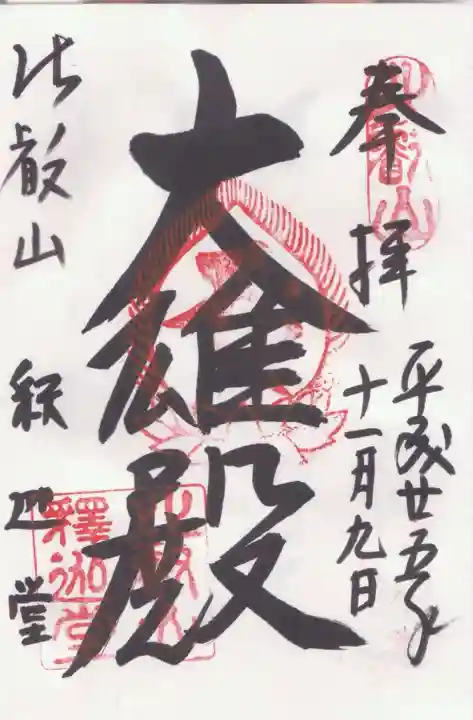 奉拝
平成廿五年
十一月九日
大雄殿
比叡山 釈迦堂
比叡山
釋迦堂